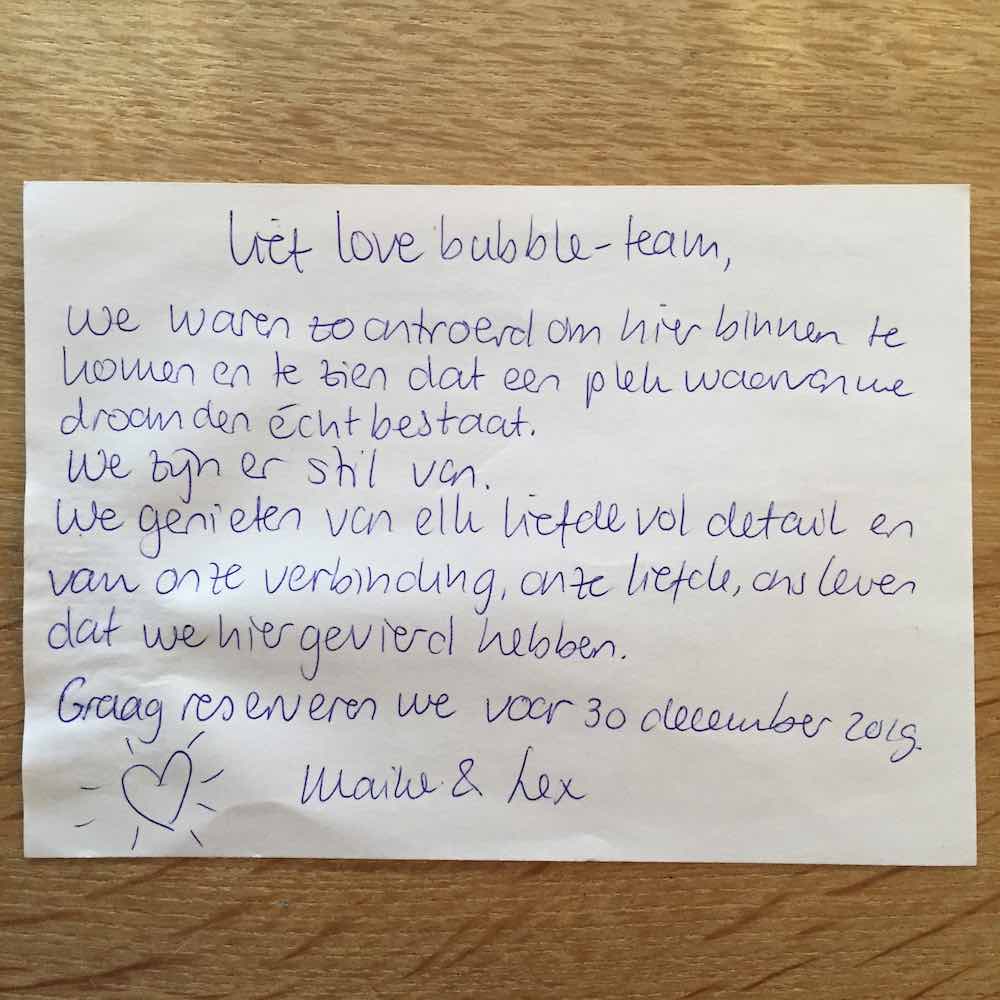 Lief love bubble-team,
We waren zo ontroerd om hier binnen te
komen en te zien dat een plek waarvan we
droomden écht bestaat.
We zijn er stil van.
We genieten van elk liefdevol detail en
van onze verbinding, onze liefde, ons leven
dat we hier gevierd hebben.
Graag reserveren we voor 30 december 2019.
Maike & Lex